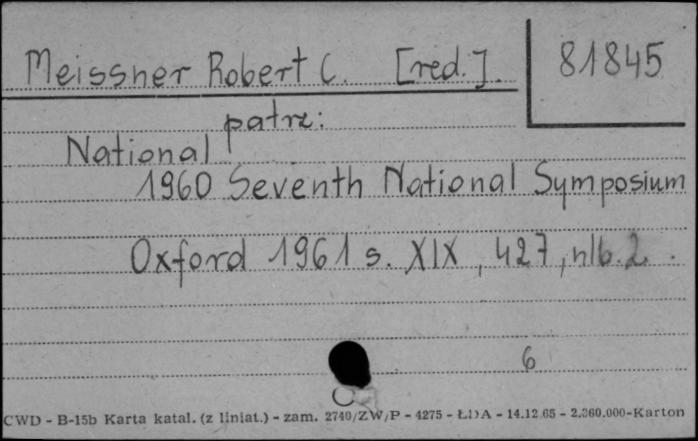 Meissner Robert C. [red.].
81845
patrz:
National
1960 Seventh National Symposium
Oxford 1961 s. XIX, 427, nlb. 2.
6
CWD - B-15b Karta katal. (z liniat.) - zam. 2740/ZW/P - 4275 - ŁDA - 14.12.65 - 2.360.000-Karton